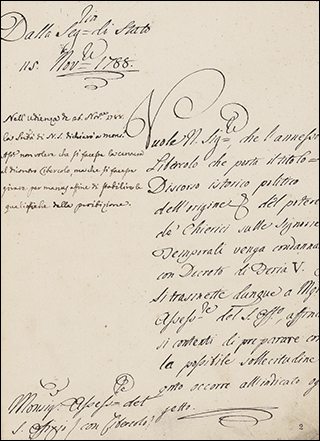 Dalla Seg.ria di Stato
li 5. Nov.re 1788.
Nell'Udienza de 26. Nov.re
la Sant.à di N. S. dichiarò a mons.
Ass.re non volere che si facesse la censura
al Libercolo, ma che si facesse
girare per manus affine di stabilire la
qualifica della proibizione.
Vuole N. Sig.re che l'annesso
Libercolo che porta il titolo =
Discorso istorico politico
dell'origine del potere
de' Chierici sulle Signorie
Temporali venga condannato
con Decreto di Feria V.
Si trasmette dunque a Mgr
Assess.re del S. Off.o, affinchè
si contenti di preparare con
la possibile sollecitudine
q.nto occorre all'indicato og
getto.
Monsig.r Assess.re del
S. Offizio / con Libercolo /
2